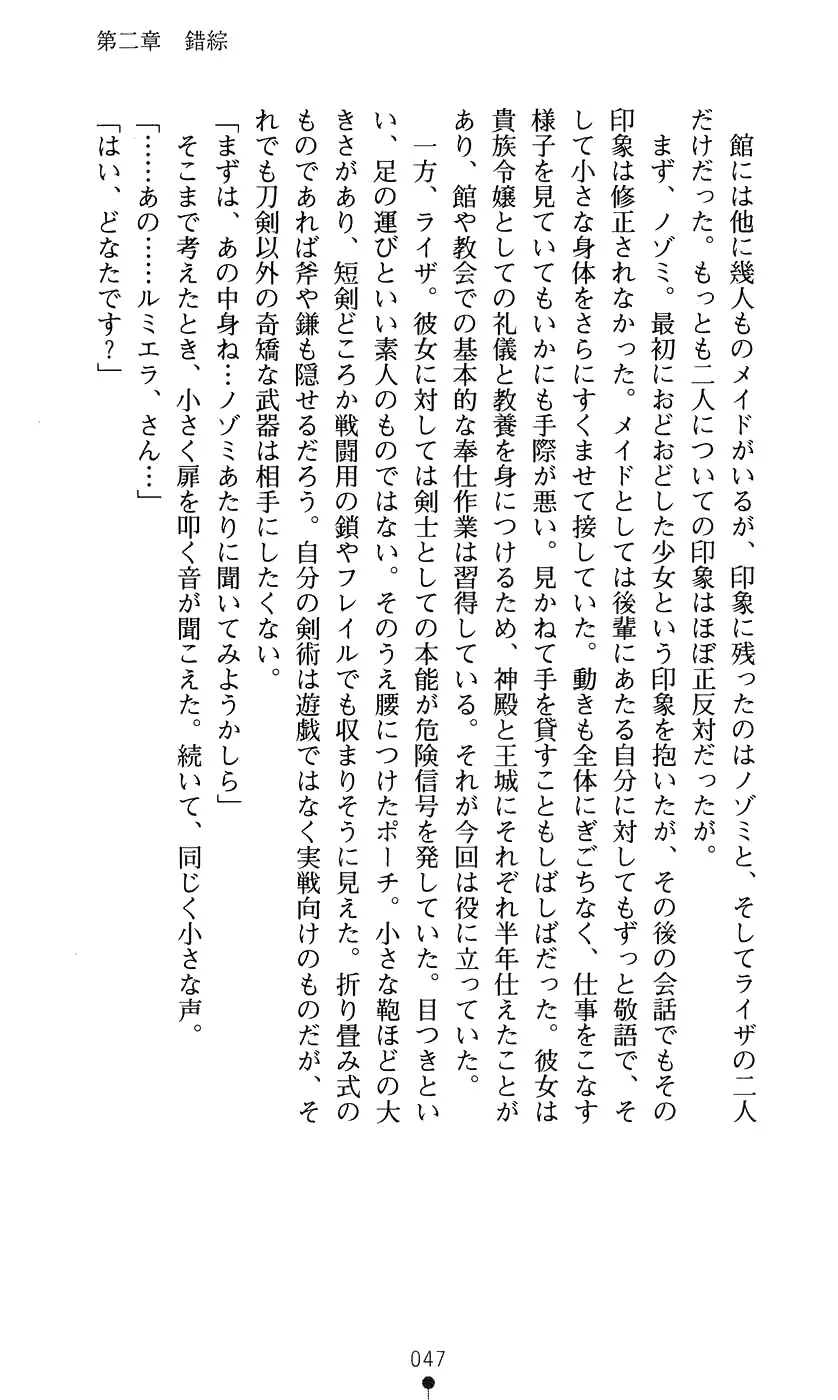 第二章　錯綜
　館には他に幾人ものメイドがいるが、印象に残ったのはノゾミと、そしてライザの二人
だけだった。もっとも二人についての印象はほぼ正反対だったが。
　まず、ノゾミ。最初におどおどした少女という印象を抱いたが、その後の会話でもその
印象は修正されなかった。メイドとしては後輩にあたる自分に対してもずっと敬語で、そ
して小さな身体をさらにすくませて接していた。動きも全体にぎごちなく、仕事をこなす
様子を見ていてもいかにも手際が悪い。見かねて手を貸すこともしばしばだった。彼女は
貴族令嬢としての礼儀と教養を身につけるため、神殿と王城にそれぞれ半年仕えたことが
あり、館や教会での基本的な奉仕作業は習得している。それが今回は役に立っていた。
　一方、ライザ。彼女に対しては剣士としての本能が危険信号を発していた。目つきとい
い、足の運びといい素人のものではない。そのうえ腰につけたポーチ。小さな鞄ほどの大
きさがあり、短剣どころか戦闘用の鎖やフレイルでも収まりそうに見えた。折り畳み式の
ものであれば斧や鎌も隠せるだろう。自分の剣術は遊戯ではなく実戦向けのものだが、そ
れでも刀剣以外の奇矯な武器は相手にしたくない。
「まずは、あの中身ね…ノゾミあたりに聞いてみようかしら」
　そこまで考えたとき、小さく扉を叩く音が聞こえた。続いて、同じく小さな声。
「……あの……ルミエラ、さん…」
「はい、どなたです？」
047